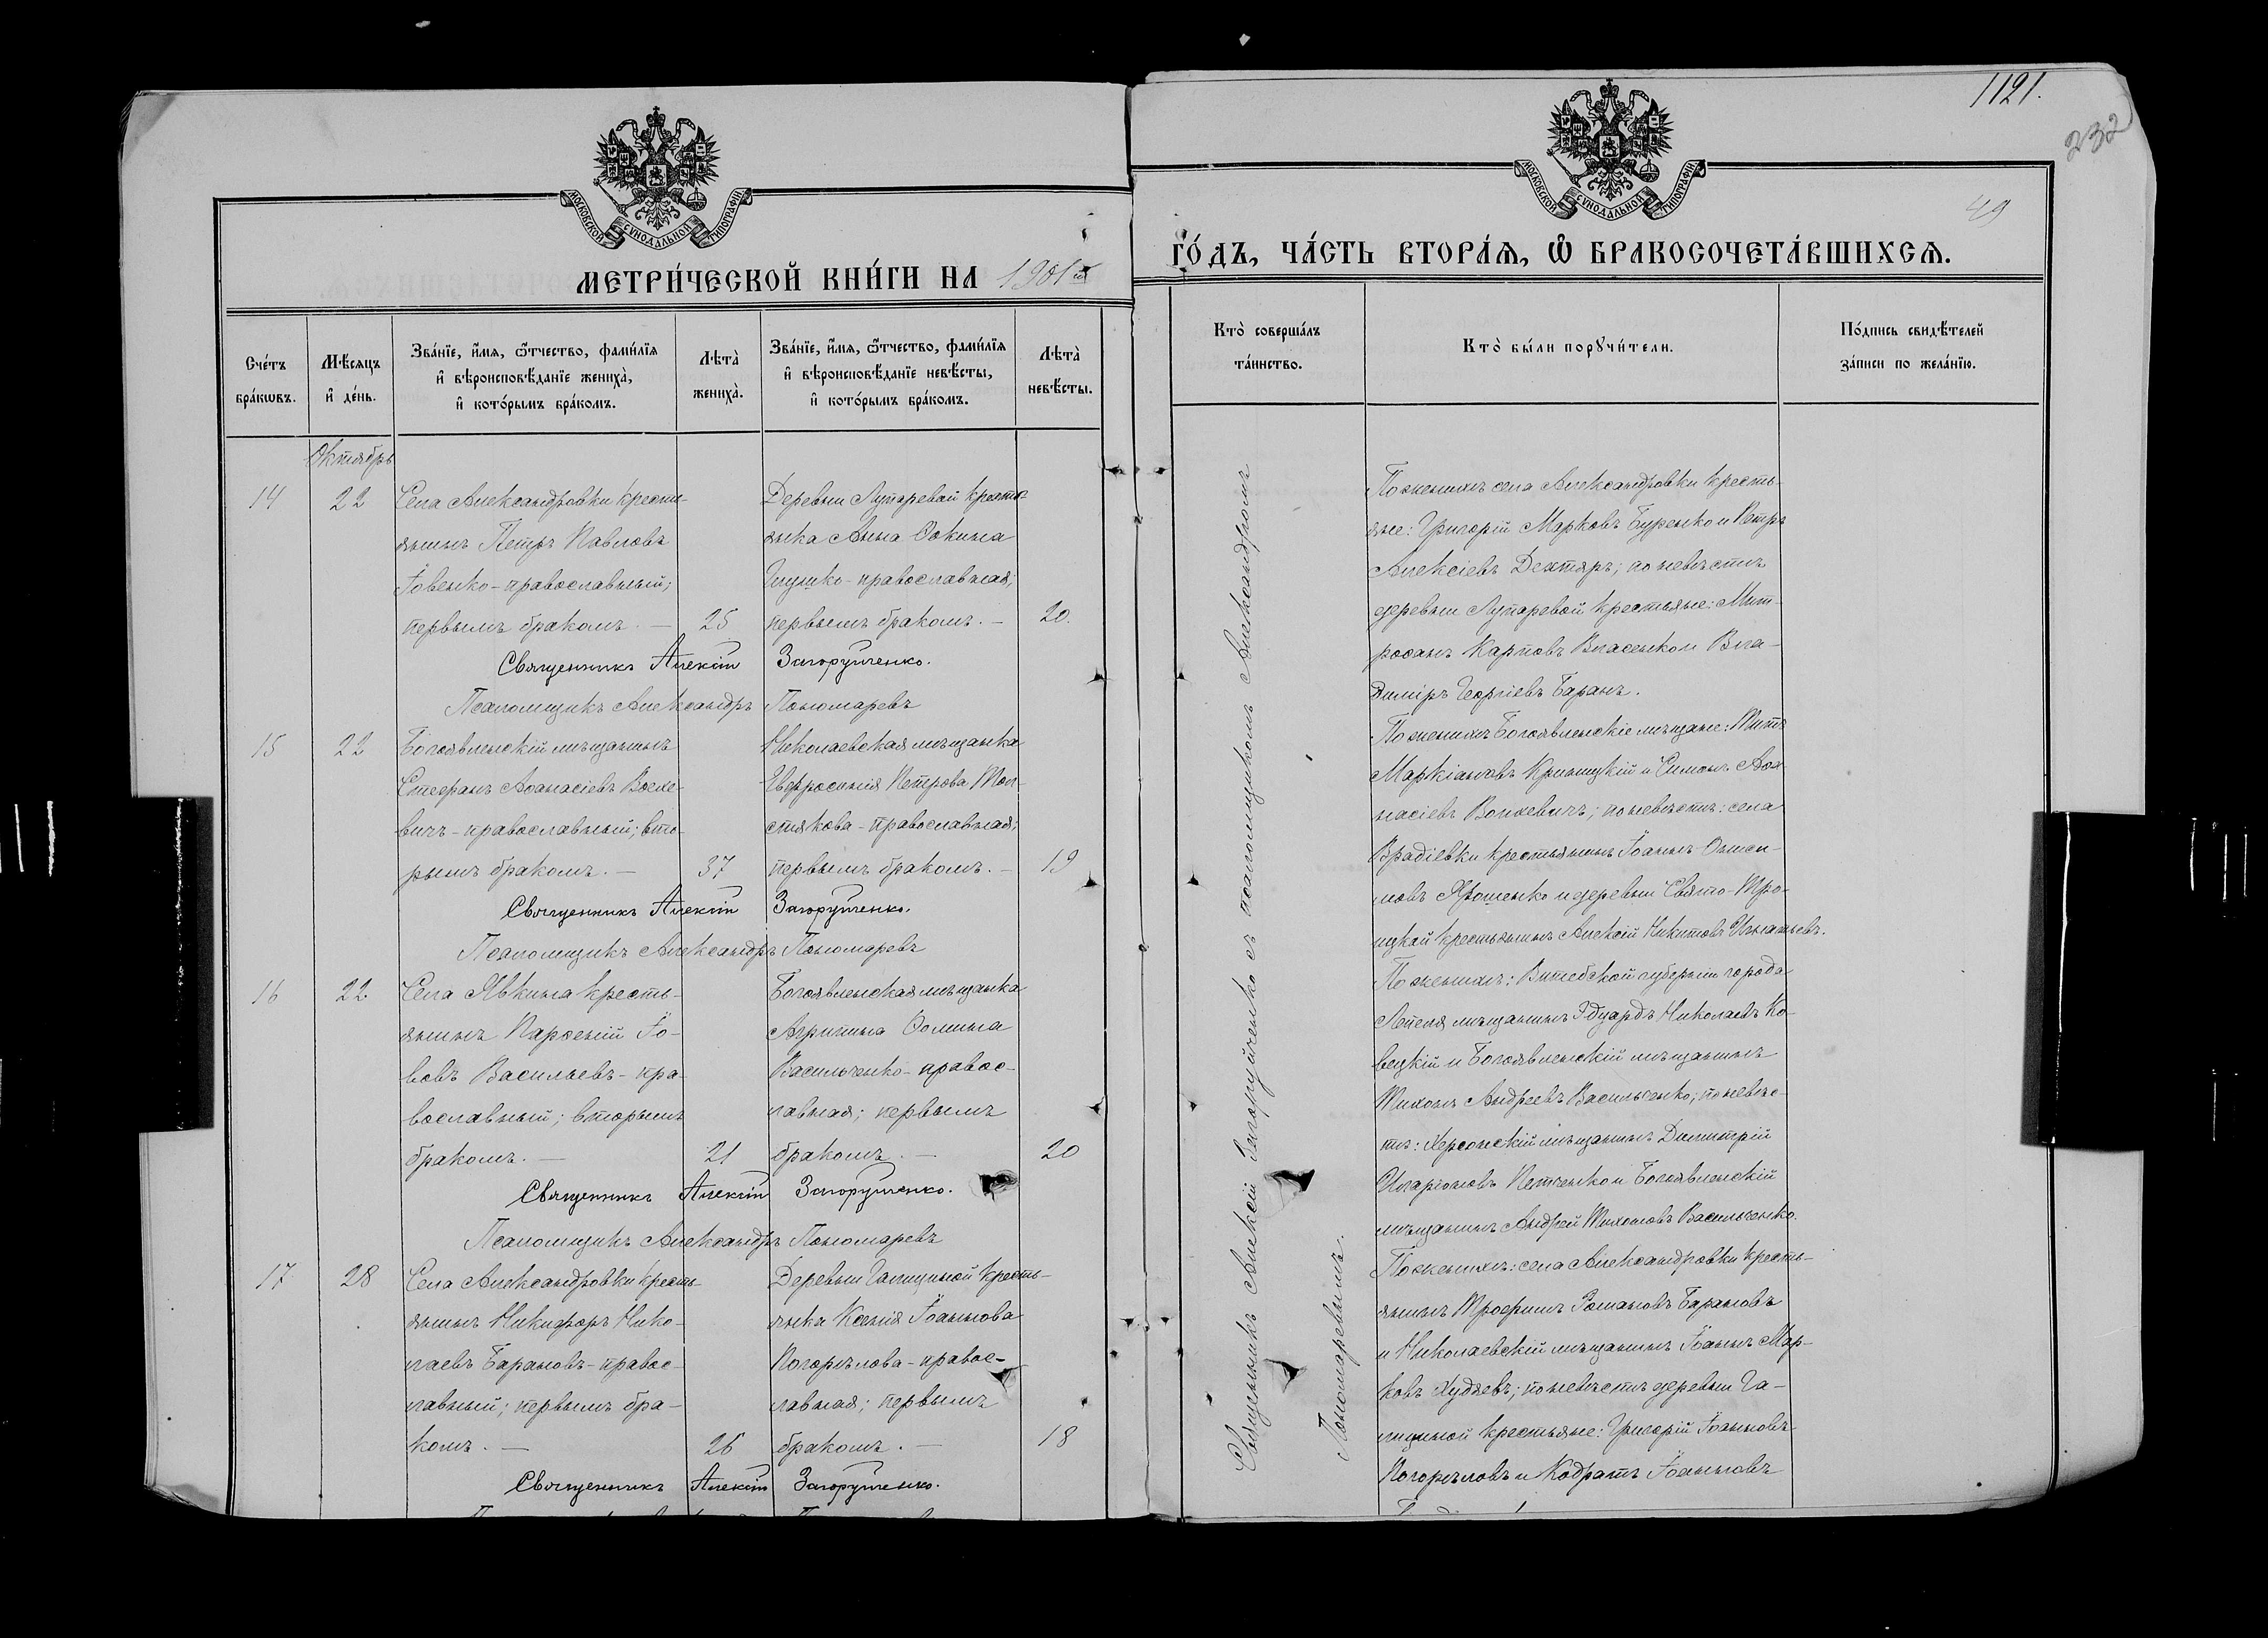 1121.
232
49
МОСКОВСКОЙ СѴНОДАЛЬНОЙ ТИПОГРАФІИ
МОСКОВСКОЙ СѴНОДАЛЬНОЙ ТИПОГРАФІИ
МЕТРИ́ЧЕСКОЙ КНИ́ГИ НА 1901й
ГО́ДЪ, ЧА́СТЬ ВТОРА́Ѧ, Ѽ БРАКОСОЧЕТА́ВШИХСѦ.
Сче́тъ бра́кѡвъ.
Мѣ́сяцъ и҆ де́нь.
Зва́нїе, и҆́мя, ѻ҆́тчество, фами́лїя
и҆ вѣроисповѣ́данїе жениха̀,
и҆ кото́рымъ бра́комъ.
Лѣта̀ жениха̀.
Зва́нїе, и҆́мя, ѻ҆́тчество, фами́лїя
и҆ вѣроисповѣ́данїе невѣ́сты,
и҆ кото́рымъ бра́комъ.
Лѣта̀ невѣ́сты.
Кто̀ соверша́лъ та́инство.
Кто̀ бы́ли порꙋчи́тели.
По́дпись свидѣ́телей за́писи по жела́нїю.
Октябрь
14
22
Села Александровки кресть-
янинъ Петръ Павловъ
Іовенко-православный;
первымъ бракомъ. —
25
Деревни Лупаревой кресть-
янка Анна Ѳокина
Глушко-православная;
первымъ бракомъ. —
20.
Священникъ Алексій Загоруйченко.
Псаломщикъ Александръ Пономаревъ
15
22
Богоявленскій мѣщанинъ
Стефанъ Аѳанасіевъ Волке-
вичъ-православный; вто-
рымъ бракомъ. —
37
Николаевская мѣщанка
Евфросинія Петрова Тол-
стякова-православная;
первымъ бракомъ. —
19
Священникъ Алексій Загоруйченко.
Псаломщикъ Александръ Пономаревъ
16
22.
Села Явкина кресть-
янинъ Парѳеній Іо-
вовъ Васильевъ-пра-
вославный; вторымъ
бракомъ. —
21
Богоявленская мѣщанка
Агрипина Ѳомина
Васильченко-правос-
лавная; первымъ
бракомъ. —
20
Священникъ Алексій Загоруйченко.
Псаломщикъ Александръ Пономаревъ
17
28
Села Александровки кресть-
янинъ Никифоръ Нико-
лаевъ Барановъ-правос-
лавный; первымъ бра-
комъ. —
26
Деревни Галициной кресть-
янка Ксенія Іоаннова
Погорѣлова-правос-
лавная; первымъ
бракомъ. —
18
Священникъ Алексій Загоруйченко.
Священникъ Алексій Загоруйченко съ псаломщикомъ Александромъ
Пономаревымъ.
По женихѣ села Александровки кресть-
яне: Григорій Марковъ Буренко и Петръ
Алексіевъ Дехтяръ; по невѣстѣ
деревни Лупаревой крестьяне: Мит-
рофанъ Карповъ Власенко и Вла-
диміръ Георгіевъ Баранъ.
По женихѣ Богоявленскіе мѣщане: Титъ
Маркіановъ Криницкій и Симонъ Аѳа-
насіевъ Волкевичъ; по невѣстѣ: села
Врадіевки крестьянинъ Іоаннъ Ониси-
мовъ Ярошенко и деревни Свято-Тро-
ицкой крестьянинъ Алексій Никитовъ Игнатьевъ.
По женихѣ: Витебской губерніи города
Лепеля мѣщанинъ Эдуардъ Николаевъ Ко-
вецкій и Богоявленскій мѣщанинъ
Тихонъ Андреевъ Васильченко; по невѣс-
тѣ: Херсонскій мѣщанинъ Димитрій
Иларіоновъ Петченко и Богоявленскій
мѣщанинъ Андрей Тихоновъ Васильченко.
По женихѣ: села Александровки кресть-
янинъ Трофимъ Романовъ Барановъ
и Николаевскій мѣщанинъ Іоаннъ Мар-
ковъ Худяевъ; по невѣстѣ деревни Га-
лициной крестьяне: Григорій Іоанновъ
Погорѣловъ и Кодратъ Іоанновъ